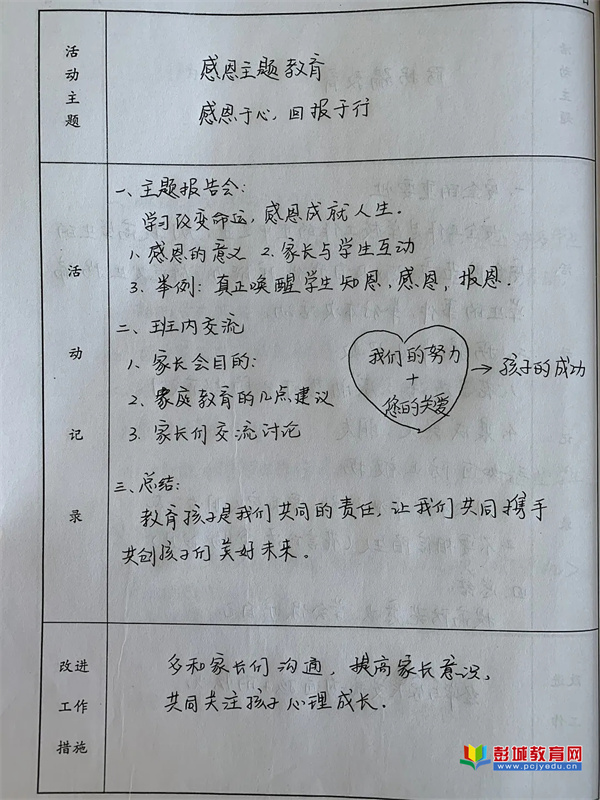 活动主题
感恩主题教育
感恩于心，回报于行
活动记录
一、主题报告会：
学习改变命运，感恩成就人生．
1、感恩的意义 2、家长与学生互动
3、举例：真正唤醒学生知恩、感恩，报恩．
二、班内交流
1、家长会目的：
2、家庭教育的几点建议
3、家长们交流讨论
我们的努力
+
您的关爱
→ 孩子的成功
三、总结：
教育孩子是我们共同的责任，让我们共同携手
共创孩子们美好未来。
改进工作措施
多和家长们沟通，提高家长意识，
共同关注孩子心理成长．
彭城教育网
www.pcjyedu.cn